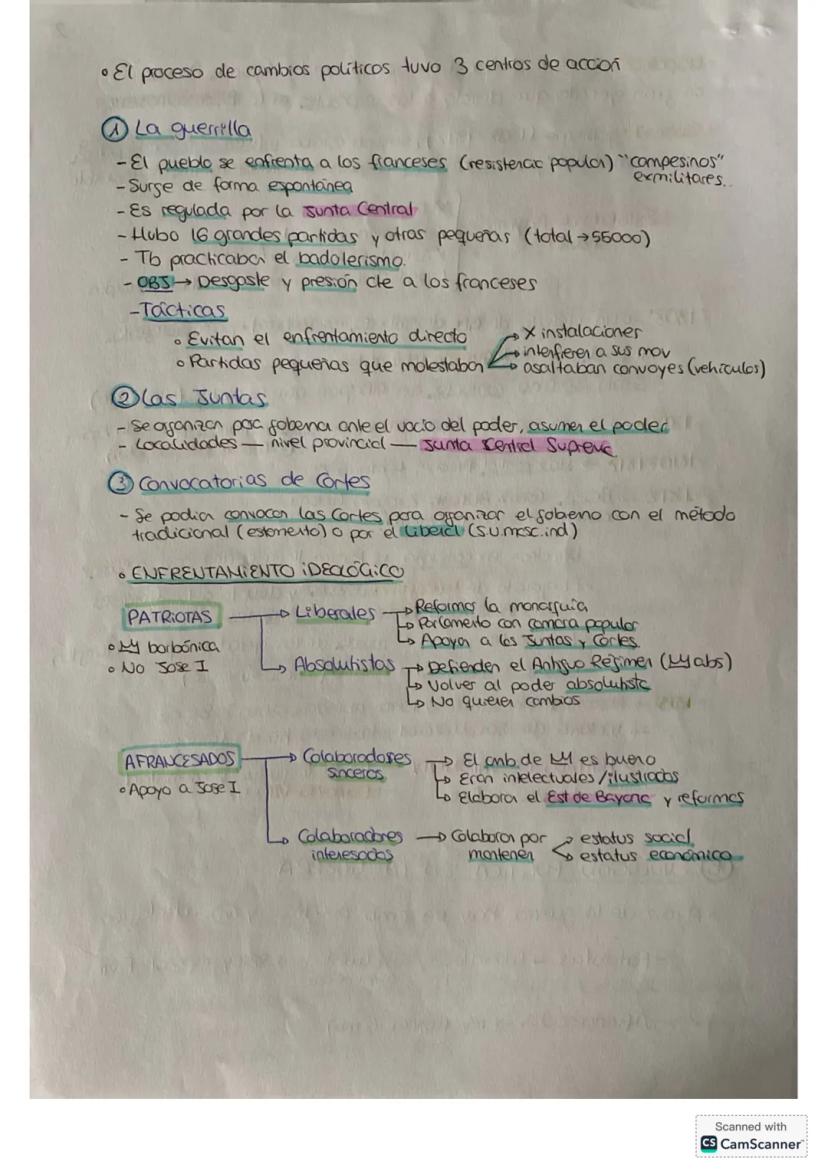 • El proceso de cambios políticos tuvo 3 centros de acción
① La guerrilla
- El pueblo se enfrenta a los franceses (resistencia popular) "campesinos"
exmilitares..
- Surge de forma espontánea
- Es regulada por la Junta Central
- Hubo 16 grandes partidas y otras pequeñas (total → 55000)
- Tb practicaban el badolerismo.
- OBJ → Desgaste y presión cte a los franceses
- Tácticas
• Evitan el enfrentamiento directo
• Partidas pequeñas que molestaban
→ X instalaciones
→ interfieren a sus mov
→ asaltaban convoyes (vehículos)
② Las Juntas
- Se organizan para gobernar ante el vacío del poder, asumen el poder
- Localidades — nivel provincial — Junta Central Suprema
③ Convocatorias de Cortes
- Se podían convocar las Cortes para organizar el gobierno con el método
tradicional (estamento) o por el liberal (S.U.masc.ind)
• ENFRENTAMIENTO IDEOLÓGICO
PATRIOTAS → Liberales → Reformar la monarquía
→ Parlamento con cámara popular
→ Apoyan a las Juntas y Cortes
• borbónica
• No Jose I
→ Absolutistas → Defienden el Antiguo Régimen (abs)
→ Volver al poder absolutista
→ No quieren cambios
AFRANCESADOS → Colaboradores sinceros → El camb. de es bueno
→ Eran intelectuales/ilustrados
→ Elabora el Est de Bayona y reformas
• Apoyo a Jose I
→ Colaboradores interesados → Colaboran por mantener
→ estatus social
→ estatus económico
Scanned with
CS CamScanner